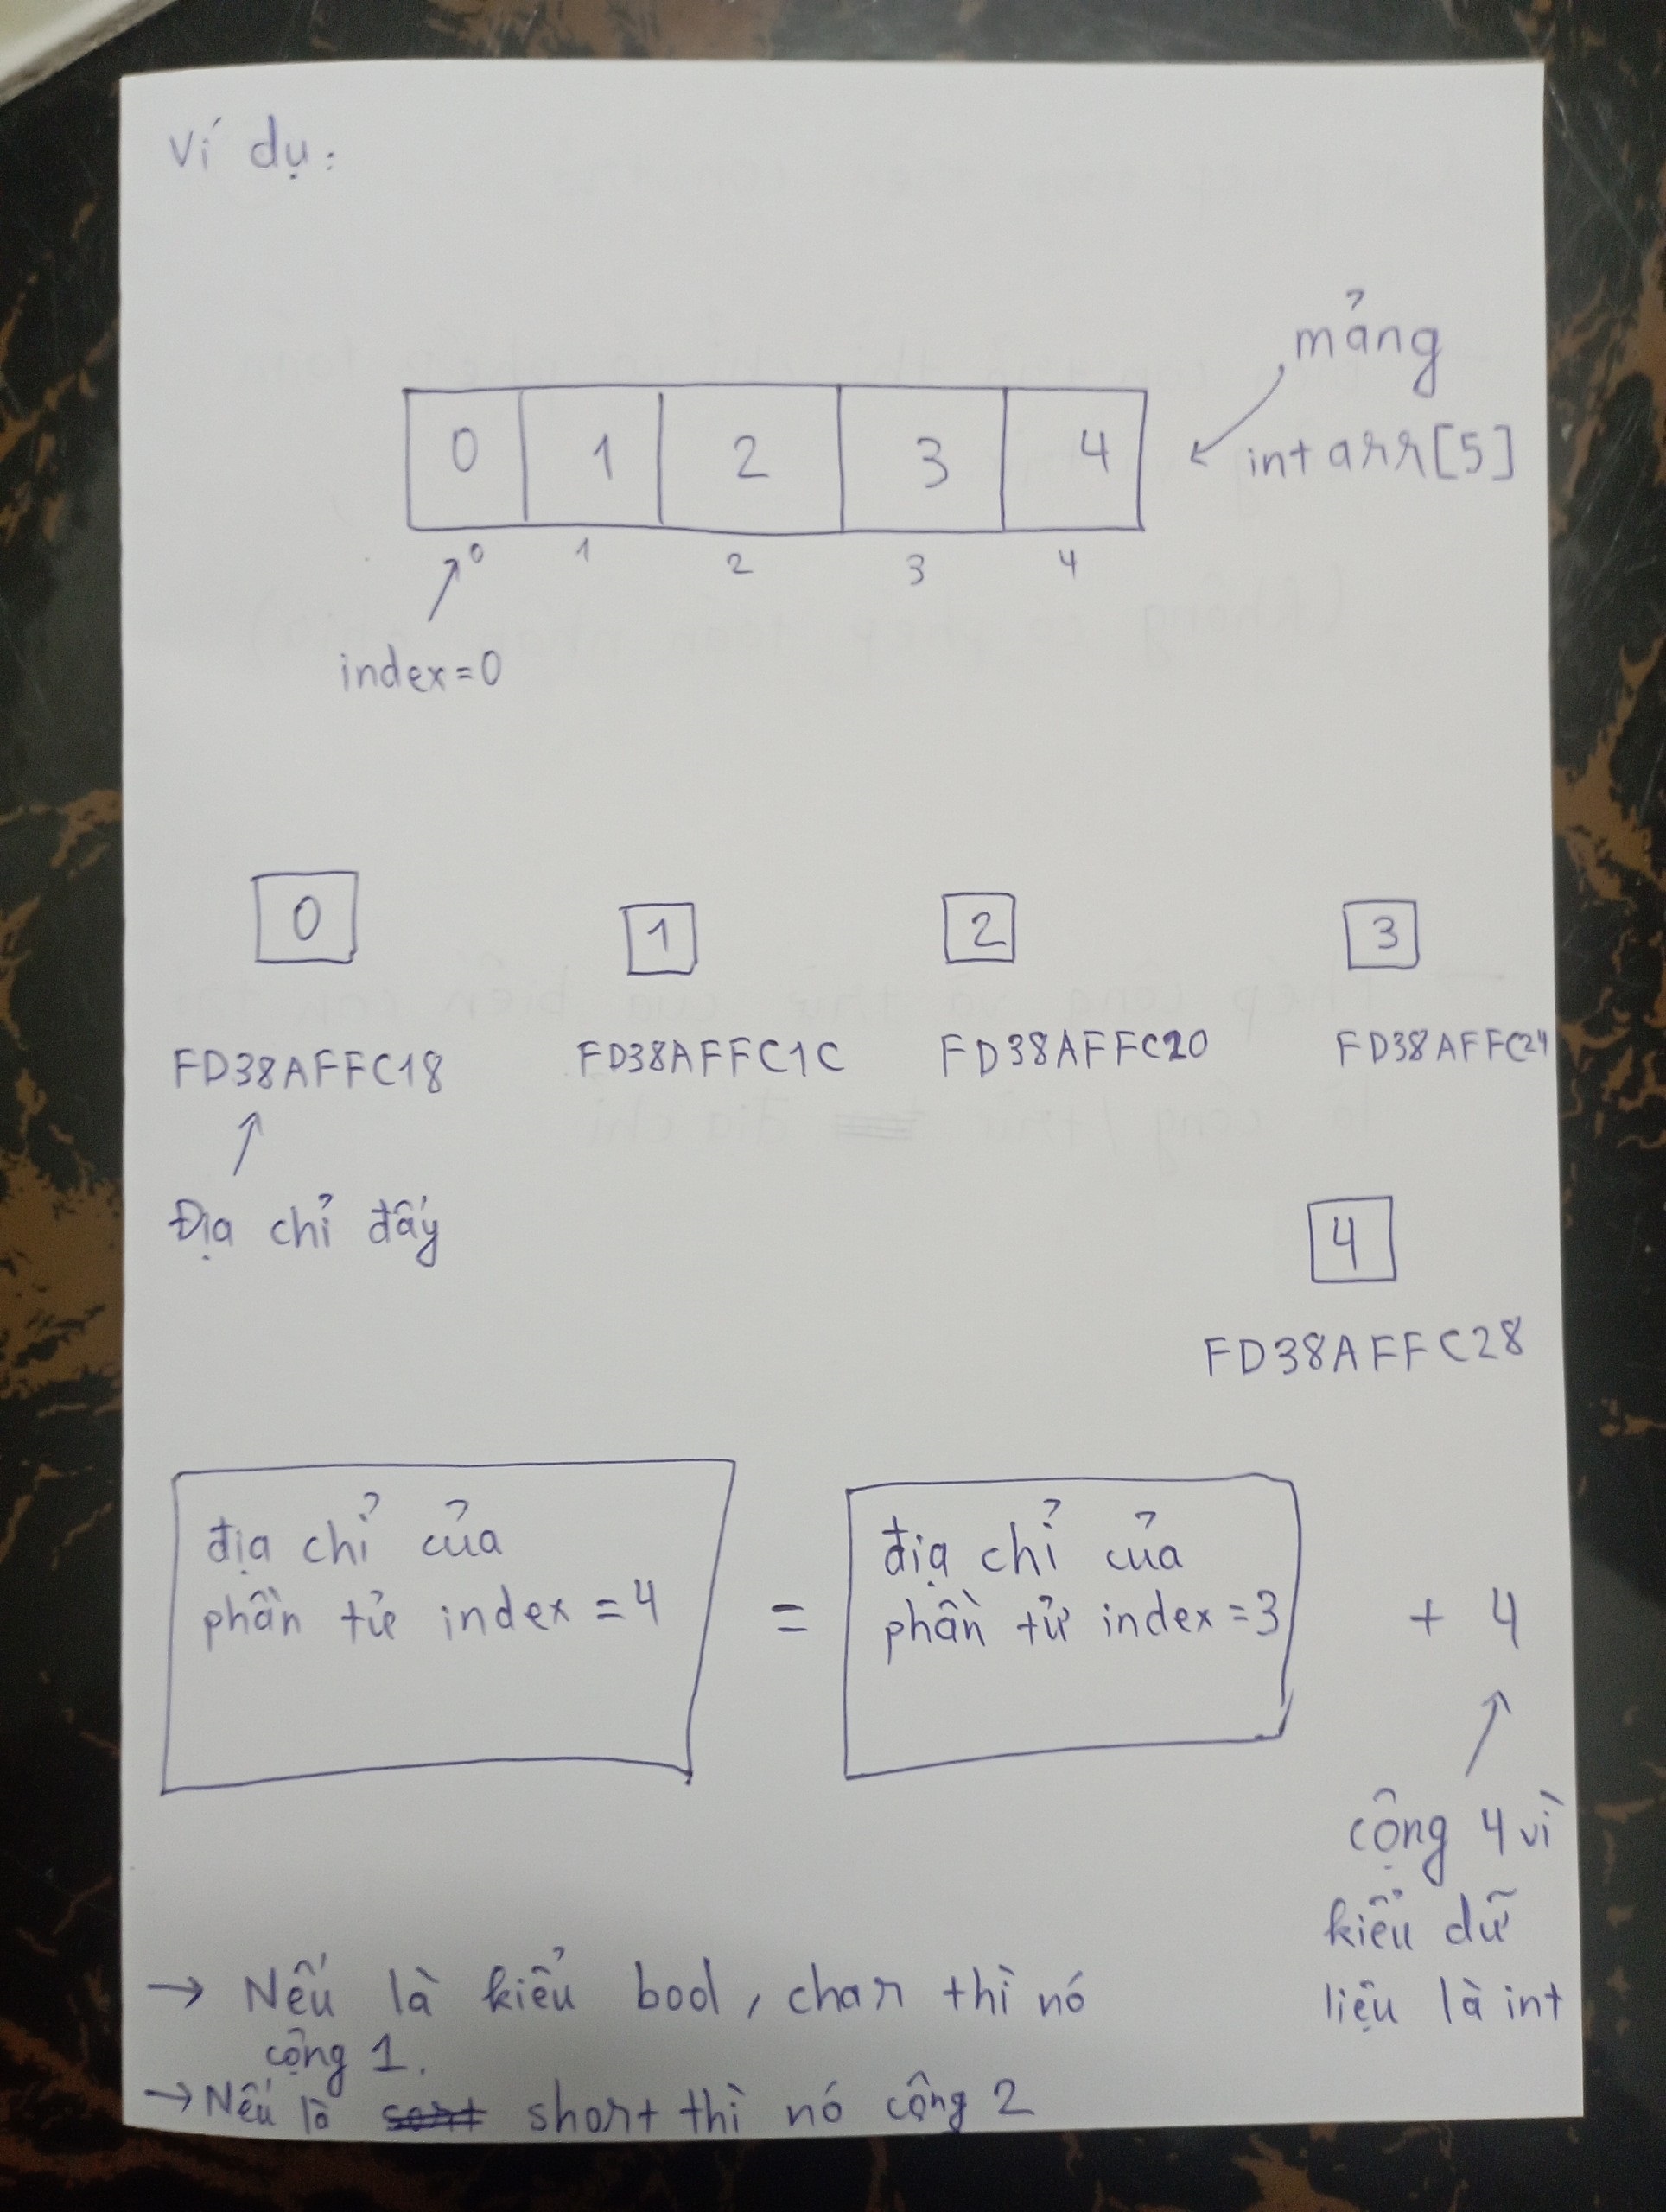 Ví dụ:
mảng
0 1 2 3 4
int arr[5]
0 1 2 3 4
index=0
0 1 2 3
FD38AFFC18 FD38AFFC1C FD38AFFC20 FD38AFFC24
Địa chỉ đấy
4
FD38AFFC28
địa chỉ của
phần tử index = 4
=
địa chỉ của
phần tử index = 3
+ 4
cộng 4 vì
kiểu dữ
liệu là int
→ Nếu là kiểu bool, char thì nó
cộng 1.
→ Nếu là short thì nó cộng 2